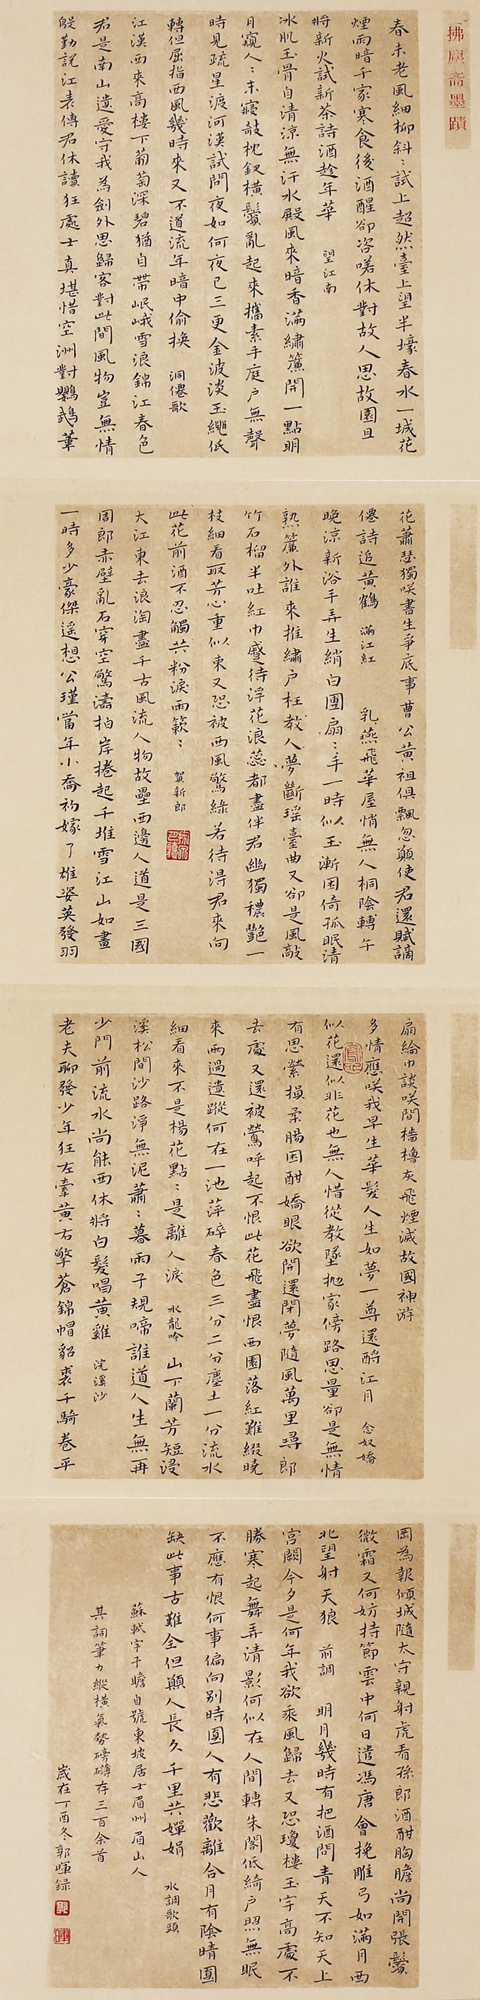 拂
斋墨蹟
春未老風細柳斜〻試上超然臺上望半壕春水一城花
煙雨暗千家寒食後酒醒卻咨嗟休對故人思故園且
將新火試新茶詩酒趁年華 望江南
冰肌玉骨自清涼無汗水殿風來暗香滿繡簾開一點明
月窺人〻未寢敧枕釵橫鬢亂起來攜素手庭戶無聲
時見疏星渡河漢試問夜如何夜已三更金波淡玉繩低
轉但屈指西風幾時來又不道流年暗中偷換 洞僊歌
江漢西來高樓下葡萄深碧猶自帶岷峨雪浪錦江春色
君是南山遺愛守我為劍外思歸客對此間風物豈無情
殷勤說江表傳君休讀狂處士真堪惜空洲對鸚鵡葦
花蕭瑟獨咲書生爭底事曹公黃祖俱飄忽願使君還賦謫
僊詩追黃鶴 滿江紅 乳燕飛華屋悄無人桐陰轉午
晚涼新浴手弄生綃白團扇〻手一時似玉漸困倚孤眠清
熟簾外誰來推繡戶枉教人夢斷瑤臺曲又卻是風敲
竹石榴半吐紅巾蹙待浮花浪蕊都盡伴君幽獨穠艷一
枝細看取芳心重似束又恐被西風驚綠若待得君來向
此花前酒不忍觸共粉淚兩簌〻 賀新郎
大江東去浪淘盡千古風流人物故壘西邊人道是三國
周郎赤壁亂石穿空驚濤拍岸捲起千堆雪江山如畫
一時多少豪傑遙想公瑾當年小喬初嫁了雄姿英發羽
扇綸巾談咲間檣櫓灰飛煙滅故國神游
多情應咲我早生華髮人生如夢一尊還酹江月 念奴嬌
似花還似非花也無人惜從教墜拋家傍路思量卻是無情
有思縈損柔腸困酣嬌眼欲開還閉夢隨風萬里尋郎
去處又還被鶯呼起不恨此花飛盡恨西園落紅難綴曉
來雨過遺蹤何在一池萍碎春色三分二分塵土一分流水
細看來不是楊花點〻是離人淚 水龍吟 山下蘭芳短浸
溪松間沙路淨無泥蕭〻暮雨子規啼誰道人生無再
少門前流水尚能西休將白髮唱黃雞 浣溪沙
老夫聊發少年狂左牽黃右擎蒼錦帽貂裘千騎卷平
岡為報傾城隨太守親射虎看孫郎酒酣胸膽尚開張鬢
微霜又何妨持節雲中何日遣馮唐會挽雕弓如滿月西
北望射天狼 前調 明月幾時有把酒問青天不知天上
宮闕今夕是何年我欲乘風歸去又恐瓊樓玉宇高處不
勝寒起舞弄清影何似在人間轉朱閣低綺戶照無眠
不應有恨何事偏向別時圓人有悲歡離合月有陰晴圓
缺此事古難全但願人長久千里共嬋娟 水調歌頭
蘇軾字子瞻自號東坡居士眉州眉山人
其詞筆力縱橫氣勢磅礴存三百余首
歲在丁酉冬郭暉錄